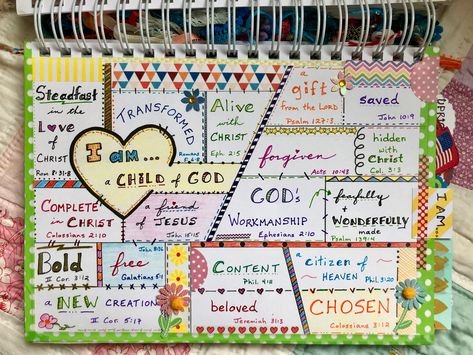 Steadfast
in the
Love
of
CHRIST
Rom. 8:31-8
TRANSFORMED
Alive
with
CHRIST
Eph. 2:5
a gift
from the LORD
Psalm 127:3
saved
John 10:9
I am...
a CHILD of GOD
forgiven
Acts 10:43
hidden
with
Christ
Col. 3:3
COMPLETE
in CHRIST
Colossians 2:10
a friend
of JESUS
John 15:15
GOD's
WORKMANSHIP
Ephesians 2:10
fearfully
+ WONDERFULLY
made
Psalm 139:14
I AM...
Bold
II Cor. 3:12
John 8:36
free
Galatians 5:1
CONTENT
Phil. 4:11
a citizen of
HEAVEN
Phil. 3:20
a NEW CREATION
II Cor. 5:17
beloved
Jeremiah 31:3
CHOSEN
Colossians 3:12